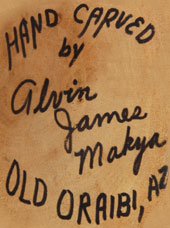 HAND CARVED
by
Alvin
James
Makya
OLD ORAIBI, AZ